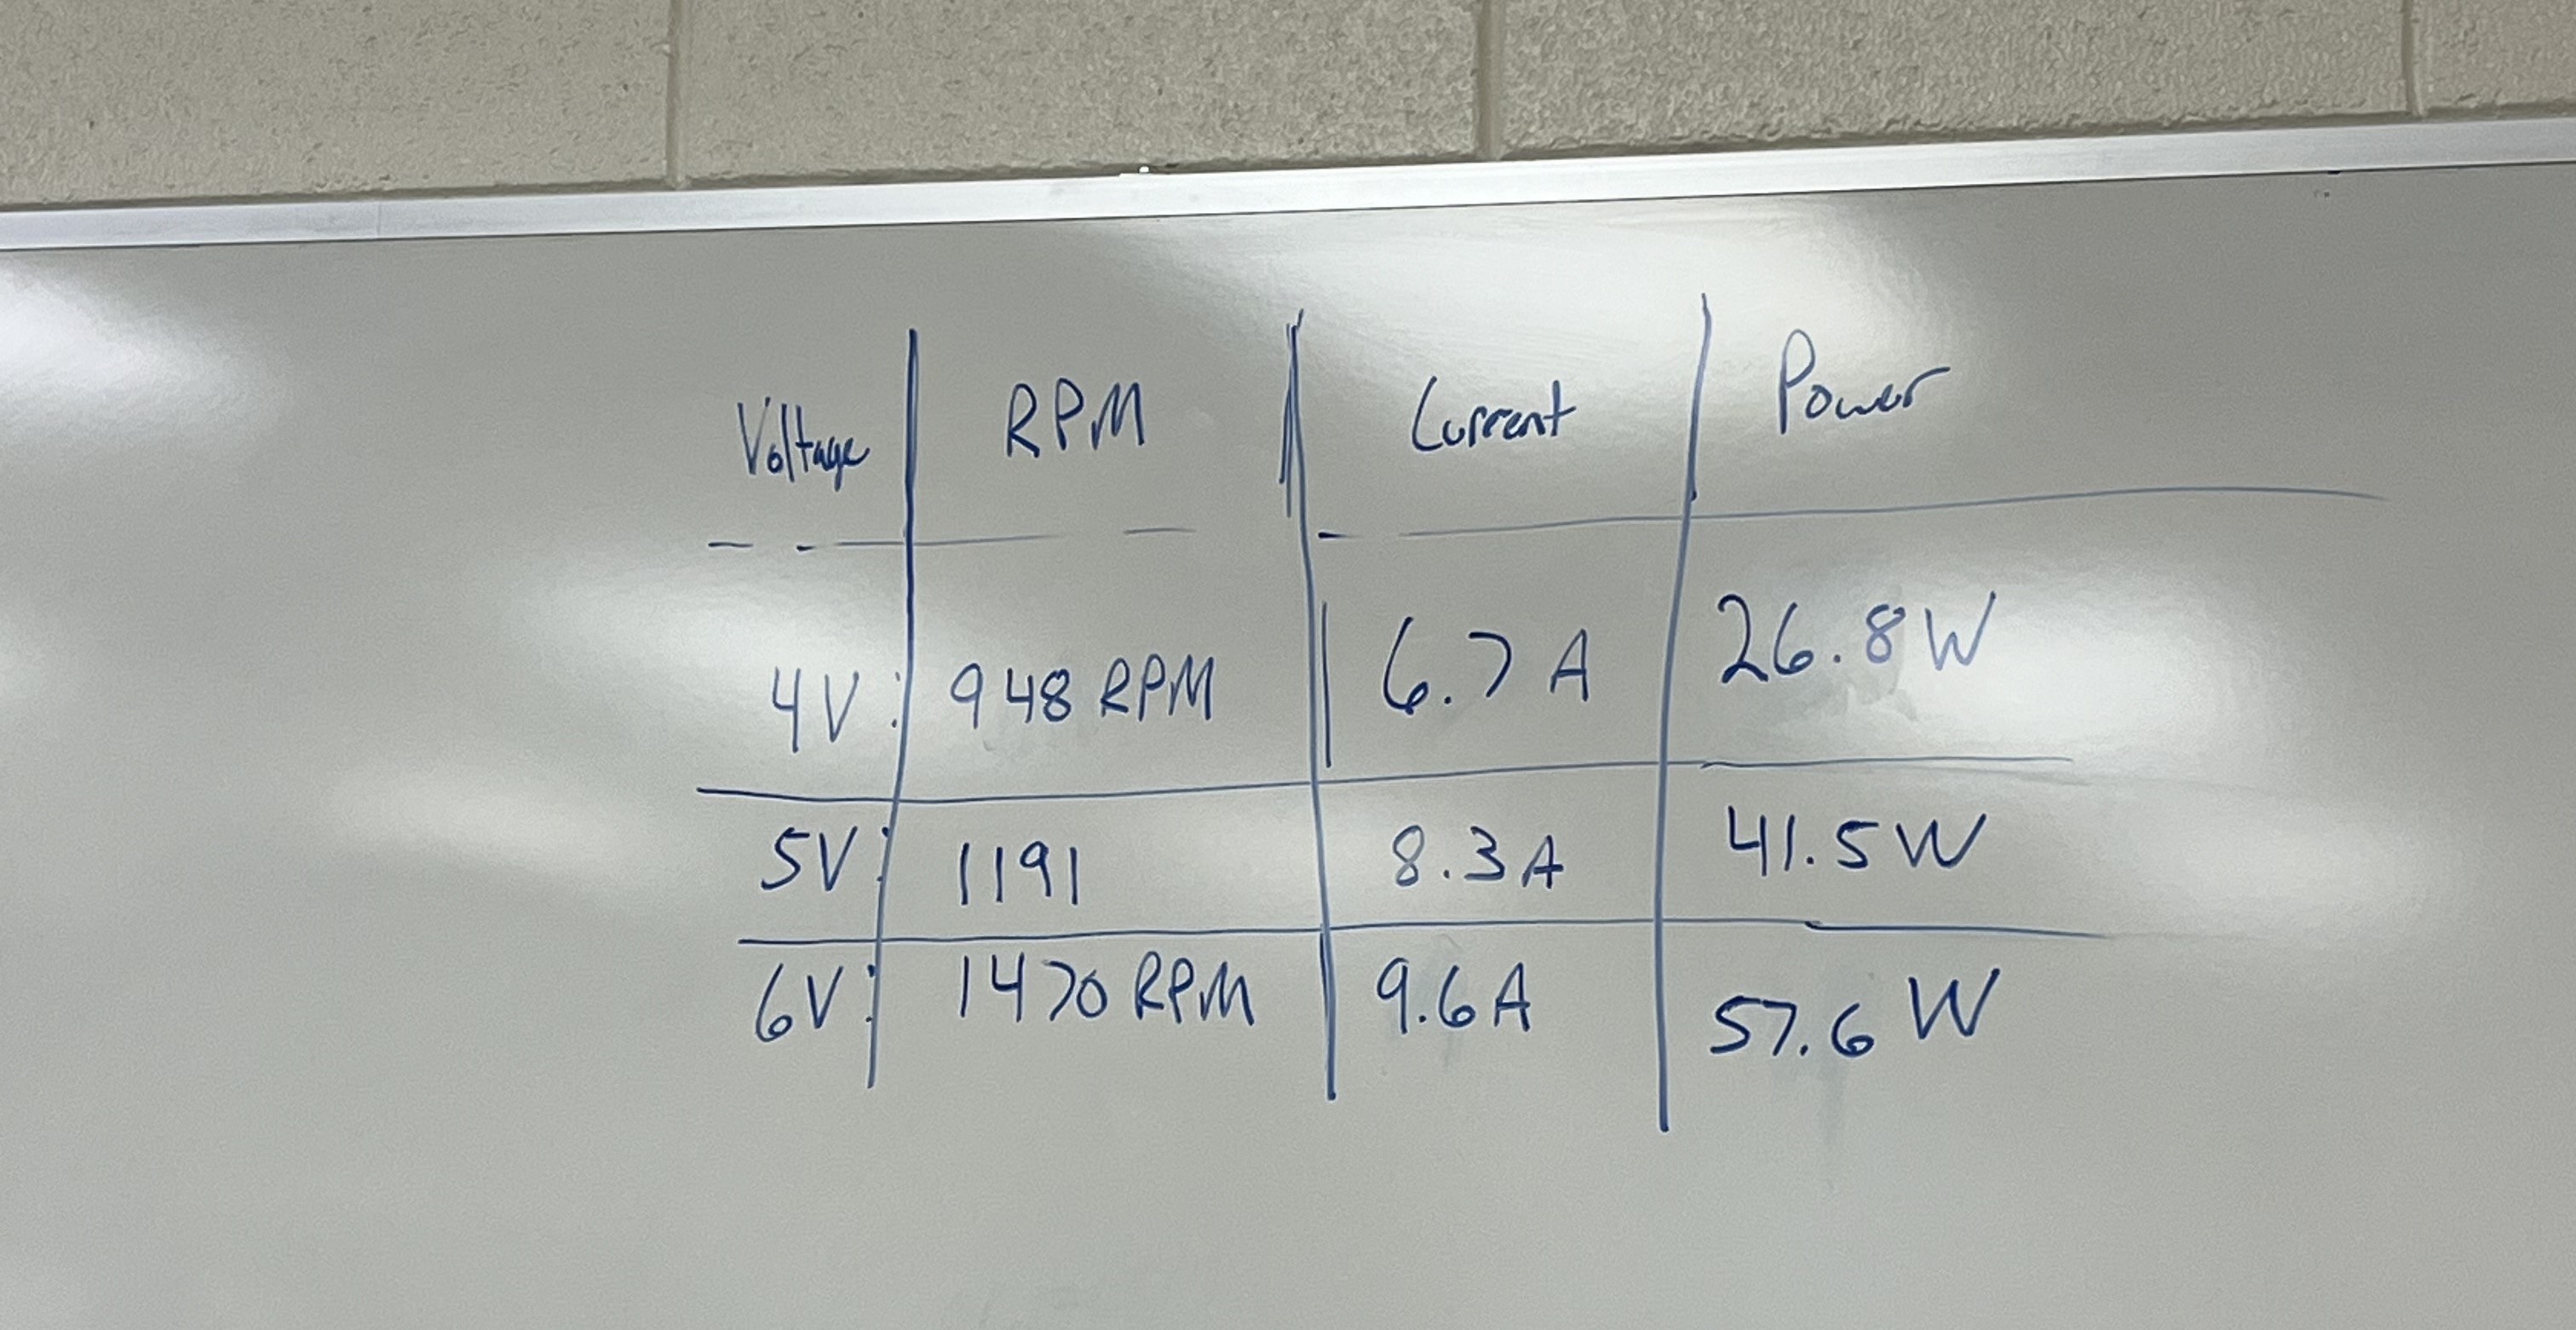 Voltage RPM Current Power
4V: 948 RPM 6.7 A 26.8 W
5V: 1191 8.3 A 41.5 W
6V: 1470 RPM 9.6 A 57.6 W